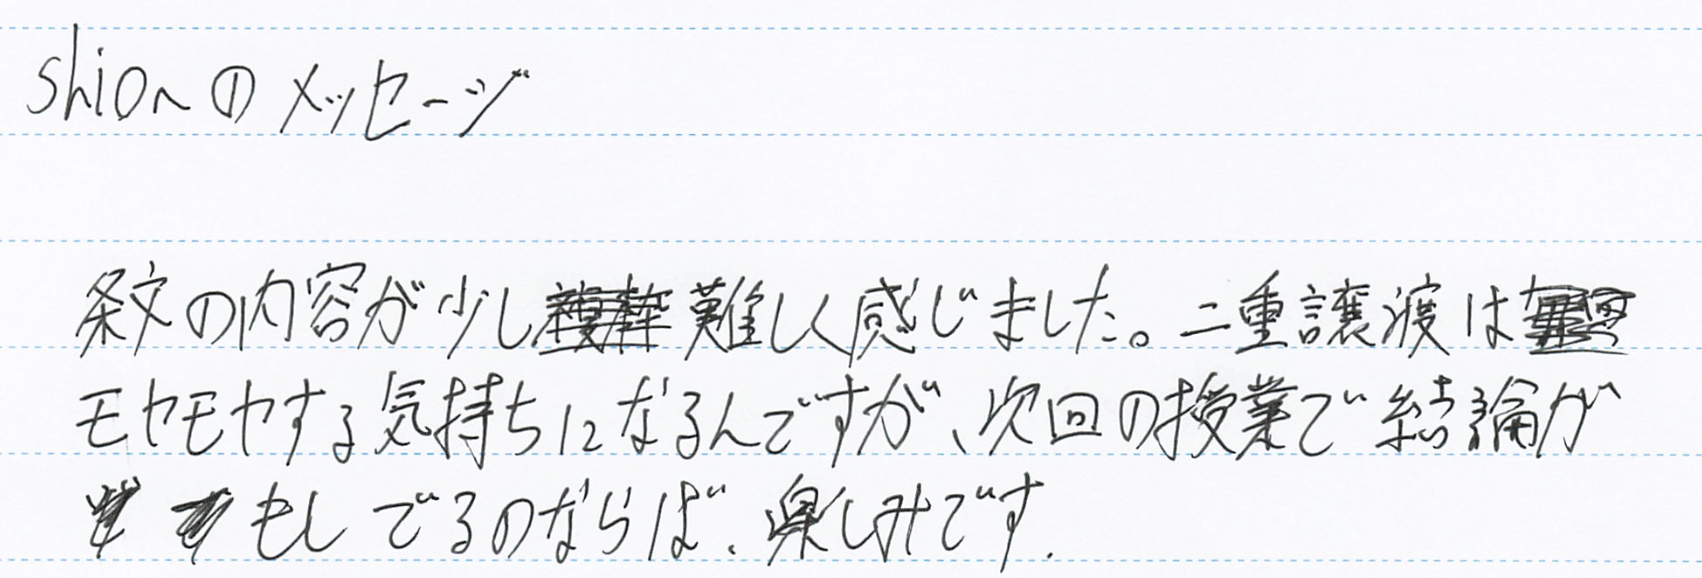 shioへのメッセージ
条文の内容が少し難しく感じました。二重譲渡は
モヤモヤする気持ちになるんですが、次回の授業で結論が
もしでるのならば、楽しみです.